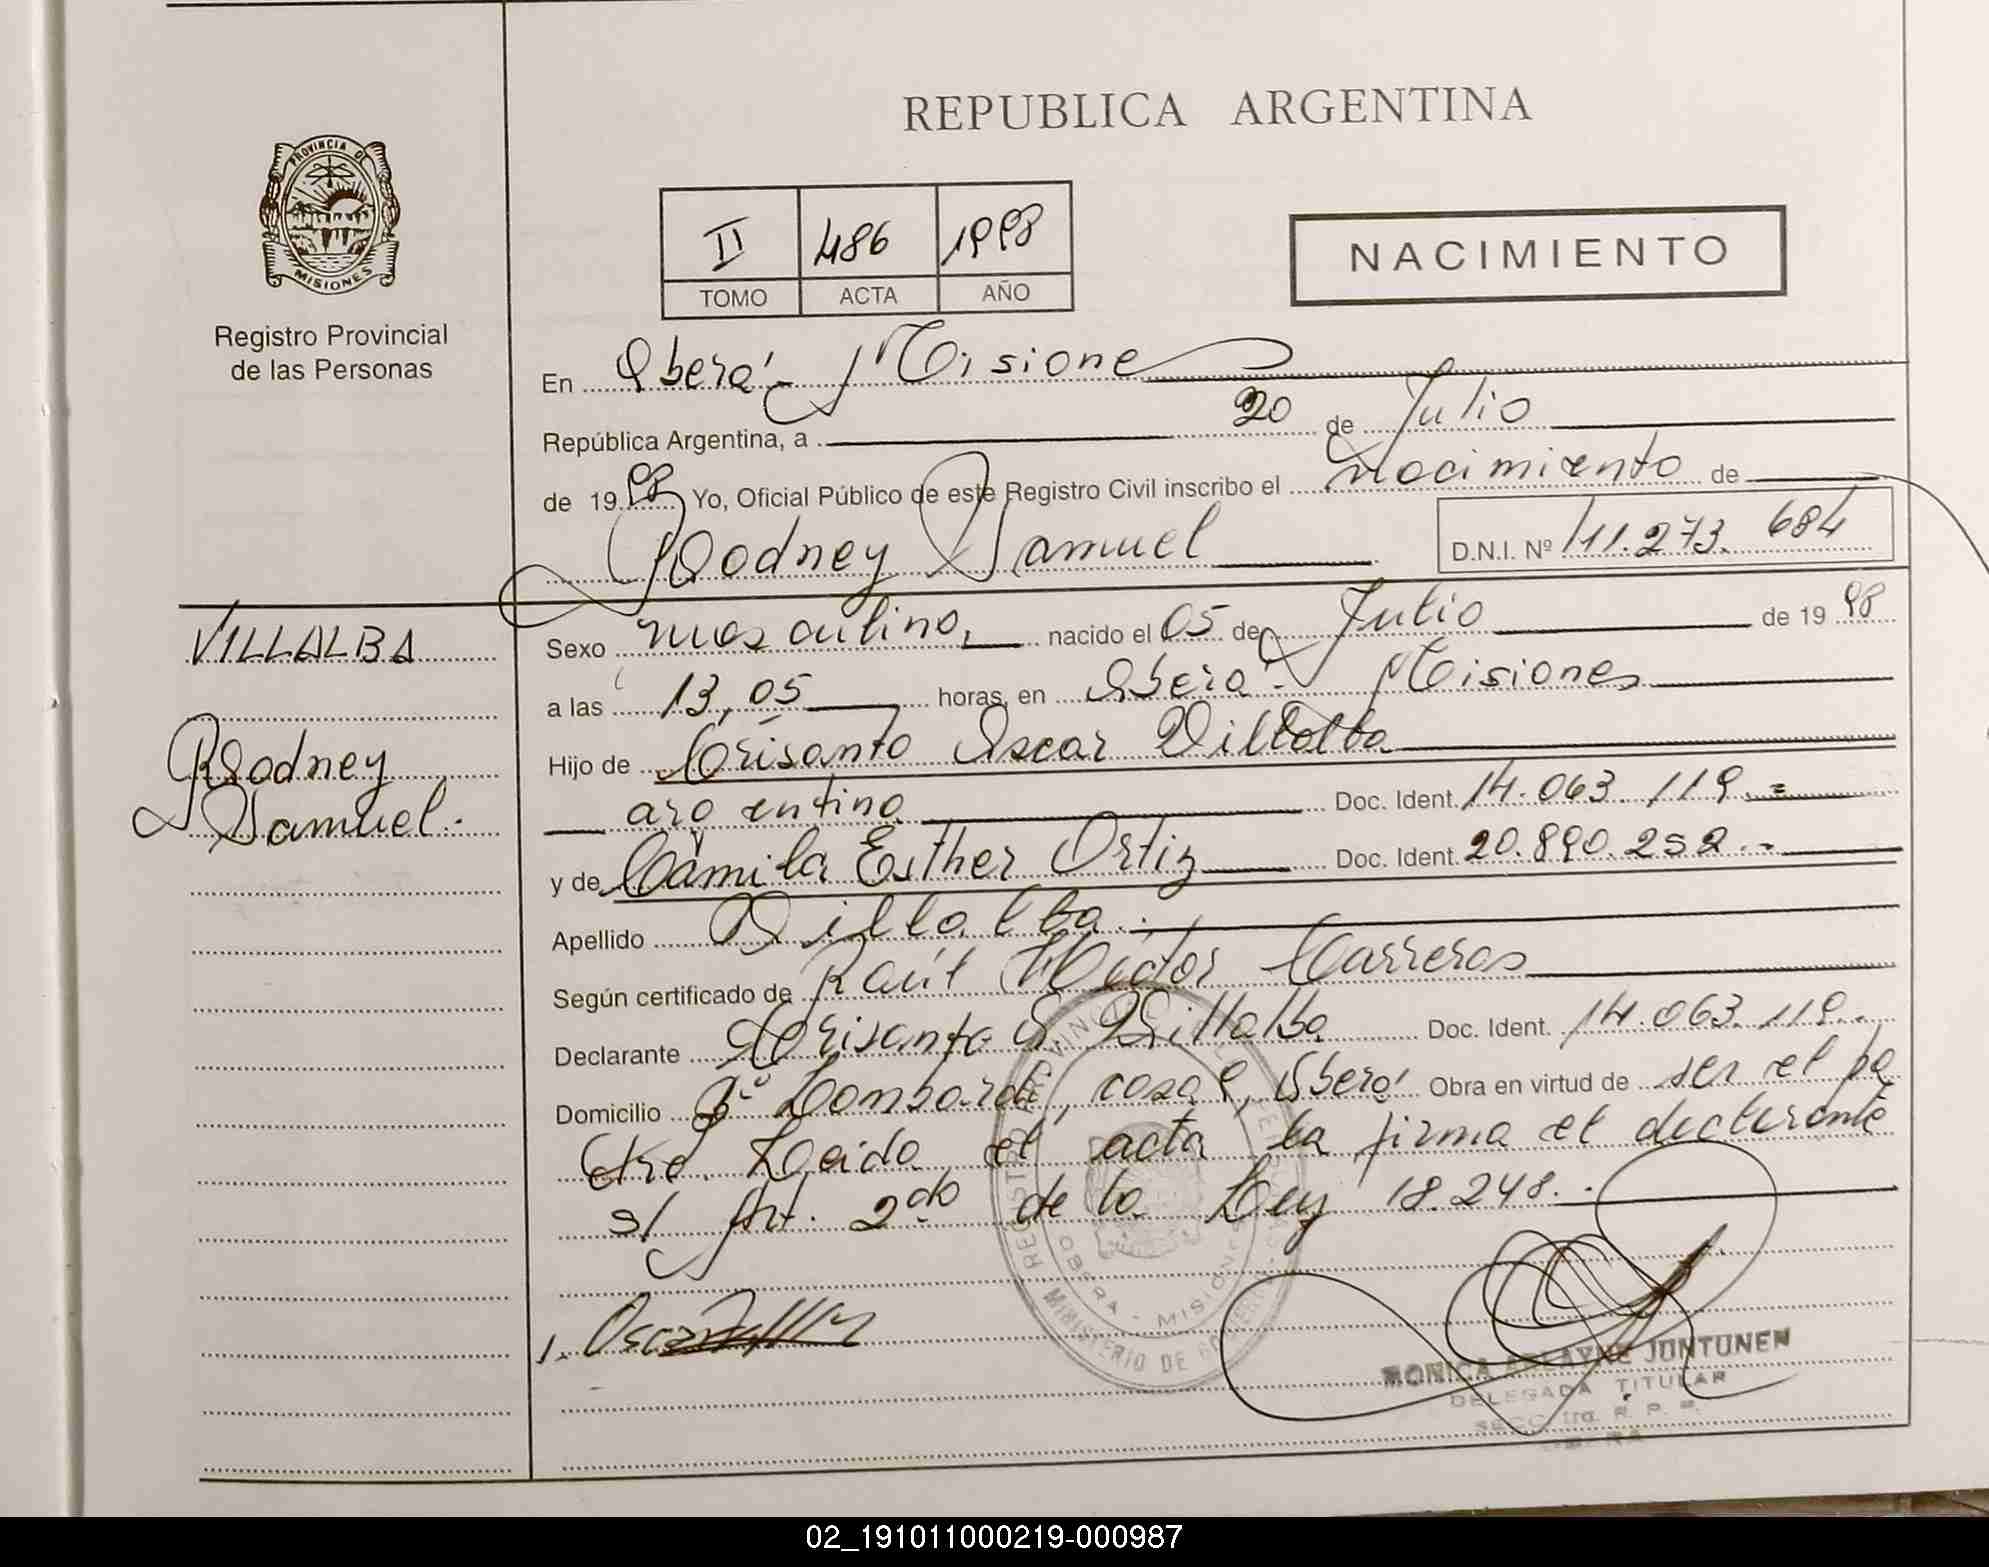 REPUBLICA ARGENTINA
PROVINCIA DE
MISIONES
Registro Provincial
de las Personas
II 486 1998
TOMO ACTA AÑO
NACIMIENTO
En Oberá - Misiones
República Argentina, a 20 de Julio
de 1998 Yo, Oficial Público de este Registro Civil inscribo el nacimiento de
Rodney Samuel D.N.I. Nº 41.273.684
VILLALBA
Rodney
Samuel.
Sexo masculino, nacido el 05 de Julio de 1998
a las 13,05 horas, en Oberá - Misiones
Hijo de Crisanto Oscar Villalba
argentino Doc. Ident. 14.063.119.=
y de Camila Esther Ortiz Doc. Ident. 20.890.252.-
Apellido Villalba.
Según certificado de Raúl Carreras
Declarante Crisanto O. Villalba Doc. Ident. 14.063.119.
Domicilio Bº casa 9, Oberá Obra en virtud de ser el pa
dre. Leida el acta la firma el declarante
s/ Art. 2do de la Ley 18.248.-
OBERA - MISIONES
MINISTERIO DE GOBIERNO
MONICA JONTUNEN
DELEGADA TITULAR
SECC. 1ra. R. P. P.
OBERA
02_191011000219-000987